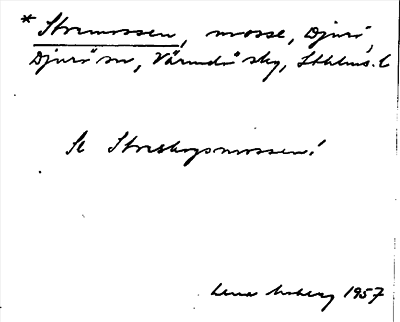 * Stormossen, mosse, Djurö,
Djurö sn, Värmdö skg, Sthlms. l
Se Storskogsmossen!
Lena Moberg 1957